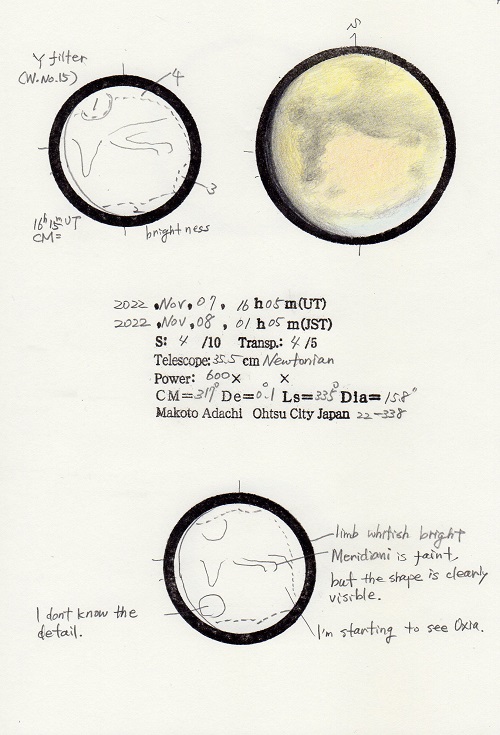 S
Y filter
(W.No.15)
4
1
3
2
16h 15m UT
CM=
brightness
2022 . Nov . 07 . 16 h 05 m (UT)
2022 . Nov . 08 . 01 h 05 m (JST)
S: 4 /10 Transp.: 4 /5
Telescope: 35.5 cm Newtonian
Power: 600 × ×
CM=317° De=0.1° Ls=335° Dia=15.8"
Makoto Adachi Ohtsu City Japan 22-338
limb whitish bright
Meridiani is faint,
but the shape is clearly
visible.
I don't know the
detail.
I'm starting to see Oxia.